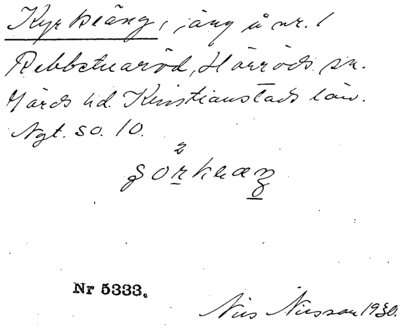 Kyrkäng, äng å nr. 1
Rebbetuaröd, Hörröds sn.
Gärds hd. Kristianstads län.
Ngt. SO. 10.
2
Nr 5333.
Nils Nilsson 1930.